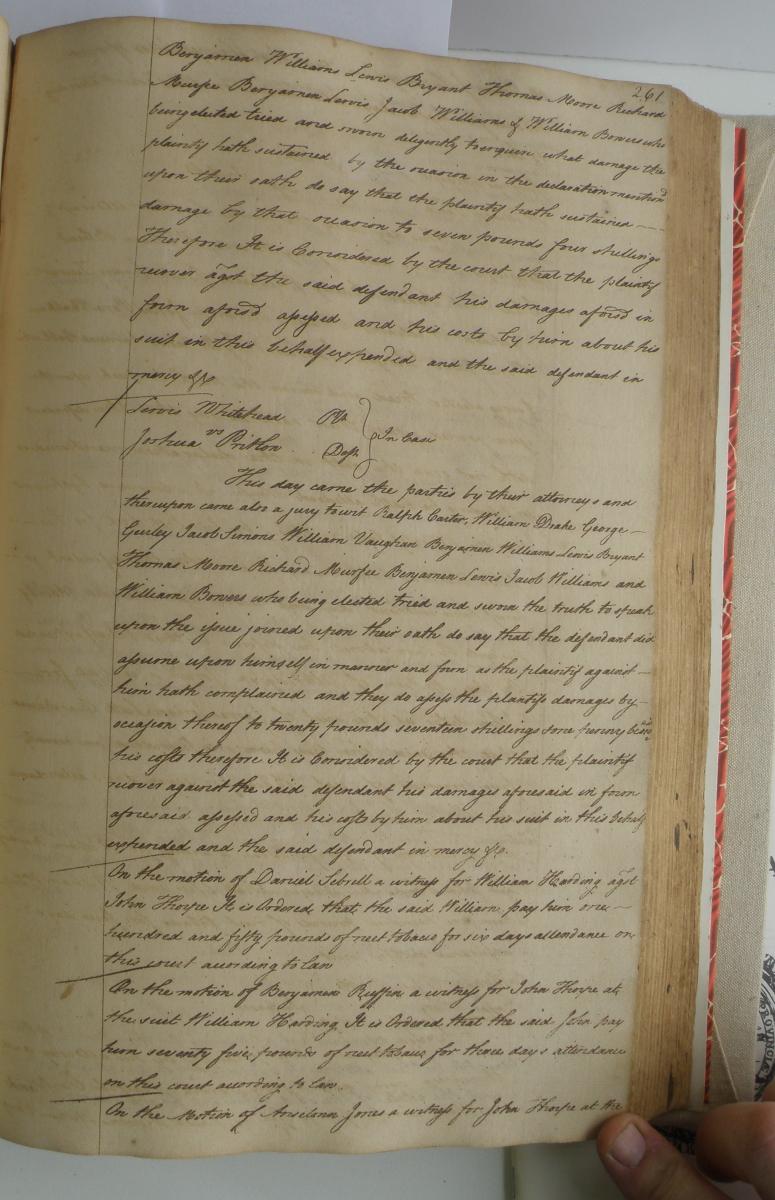 261
Benjamen Williams Lewis Bryant Thomas Moore Richard
Murfee Benjamen Lewis Jacob Williams & William Bowers who
being elected tried and sworn diligently to enquire what damage the
plaintif hath sustained by the ocasion in the declaration mentiond
upon their oath do say that the plaintif hath sustained
damage by that occasion to seven pounds four shillings
Therefore It is Considered by the court that the plaintif
recover agst the said defendant his damages aforesd in
form aforsd assessed and his costs by him about his
suit in this behalf expended and the said defendant in
mercy &c
Lewis Whitehead Plt
vs In Case
Joshua Deft
This day came the parties by their attorneys and
thereupon came also a jury towit Ralph Carter, William Drake George
Gurley Jacob Simons William Vaughan Benjamen Williams Lewis Bryant
Thomas Moore Richard Murfee Benjamen Lewis Jacob Williams and
William Bowers who being elected tried and sworn the truth to speak
upon the issue joined upon their oath do say that the defendant did
assume upon himself in manner and form as the plaintif against
him hath complained and they do assess the plantifs damages by
occasion thereof to twenty pounds seventeen shillings some penny besides
his costs therefore It is Considered by the court that the plaintif
recover against the said defendant his damages aforesaid in form
aforesaid assessed and his costs by him about his suit in this behalf
expended and the said defendant in mercy &c.
On the motion of Daniel Sebrell a witness for William Harding agst
John Thorpe It is Ordered, that the said William pay him one
hundred and fifty pounds of neet tobaco for six days attendance on
this court acording to law
On the motion of Benjamen Ruffin a witness for John Thorpe at
the suit William Harding It is Ordered that the said John pay
him seventy five pounds of neet tobaco for three days attendance
on this court acording to law.
On the Motion of Anselmn Jones a witness for John Thorpe at the